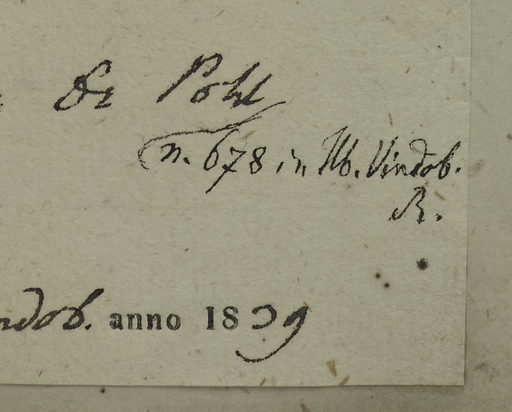 Dr Pohl
n. 678 in Hb. Vindob.
R.
ndob. anno 1839